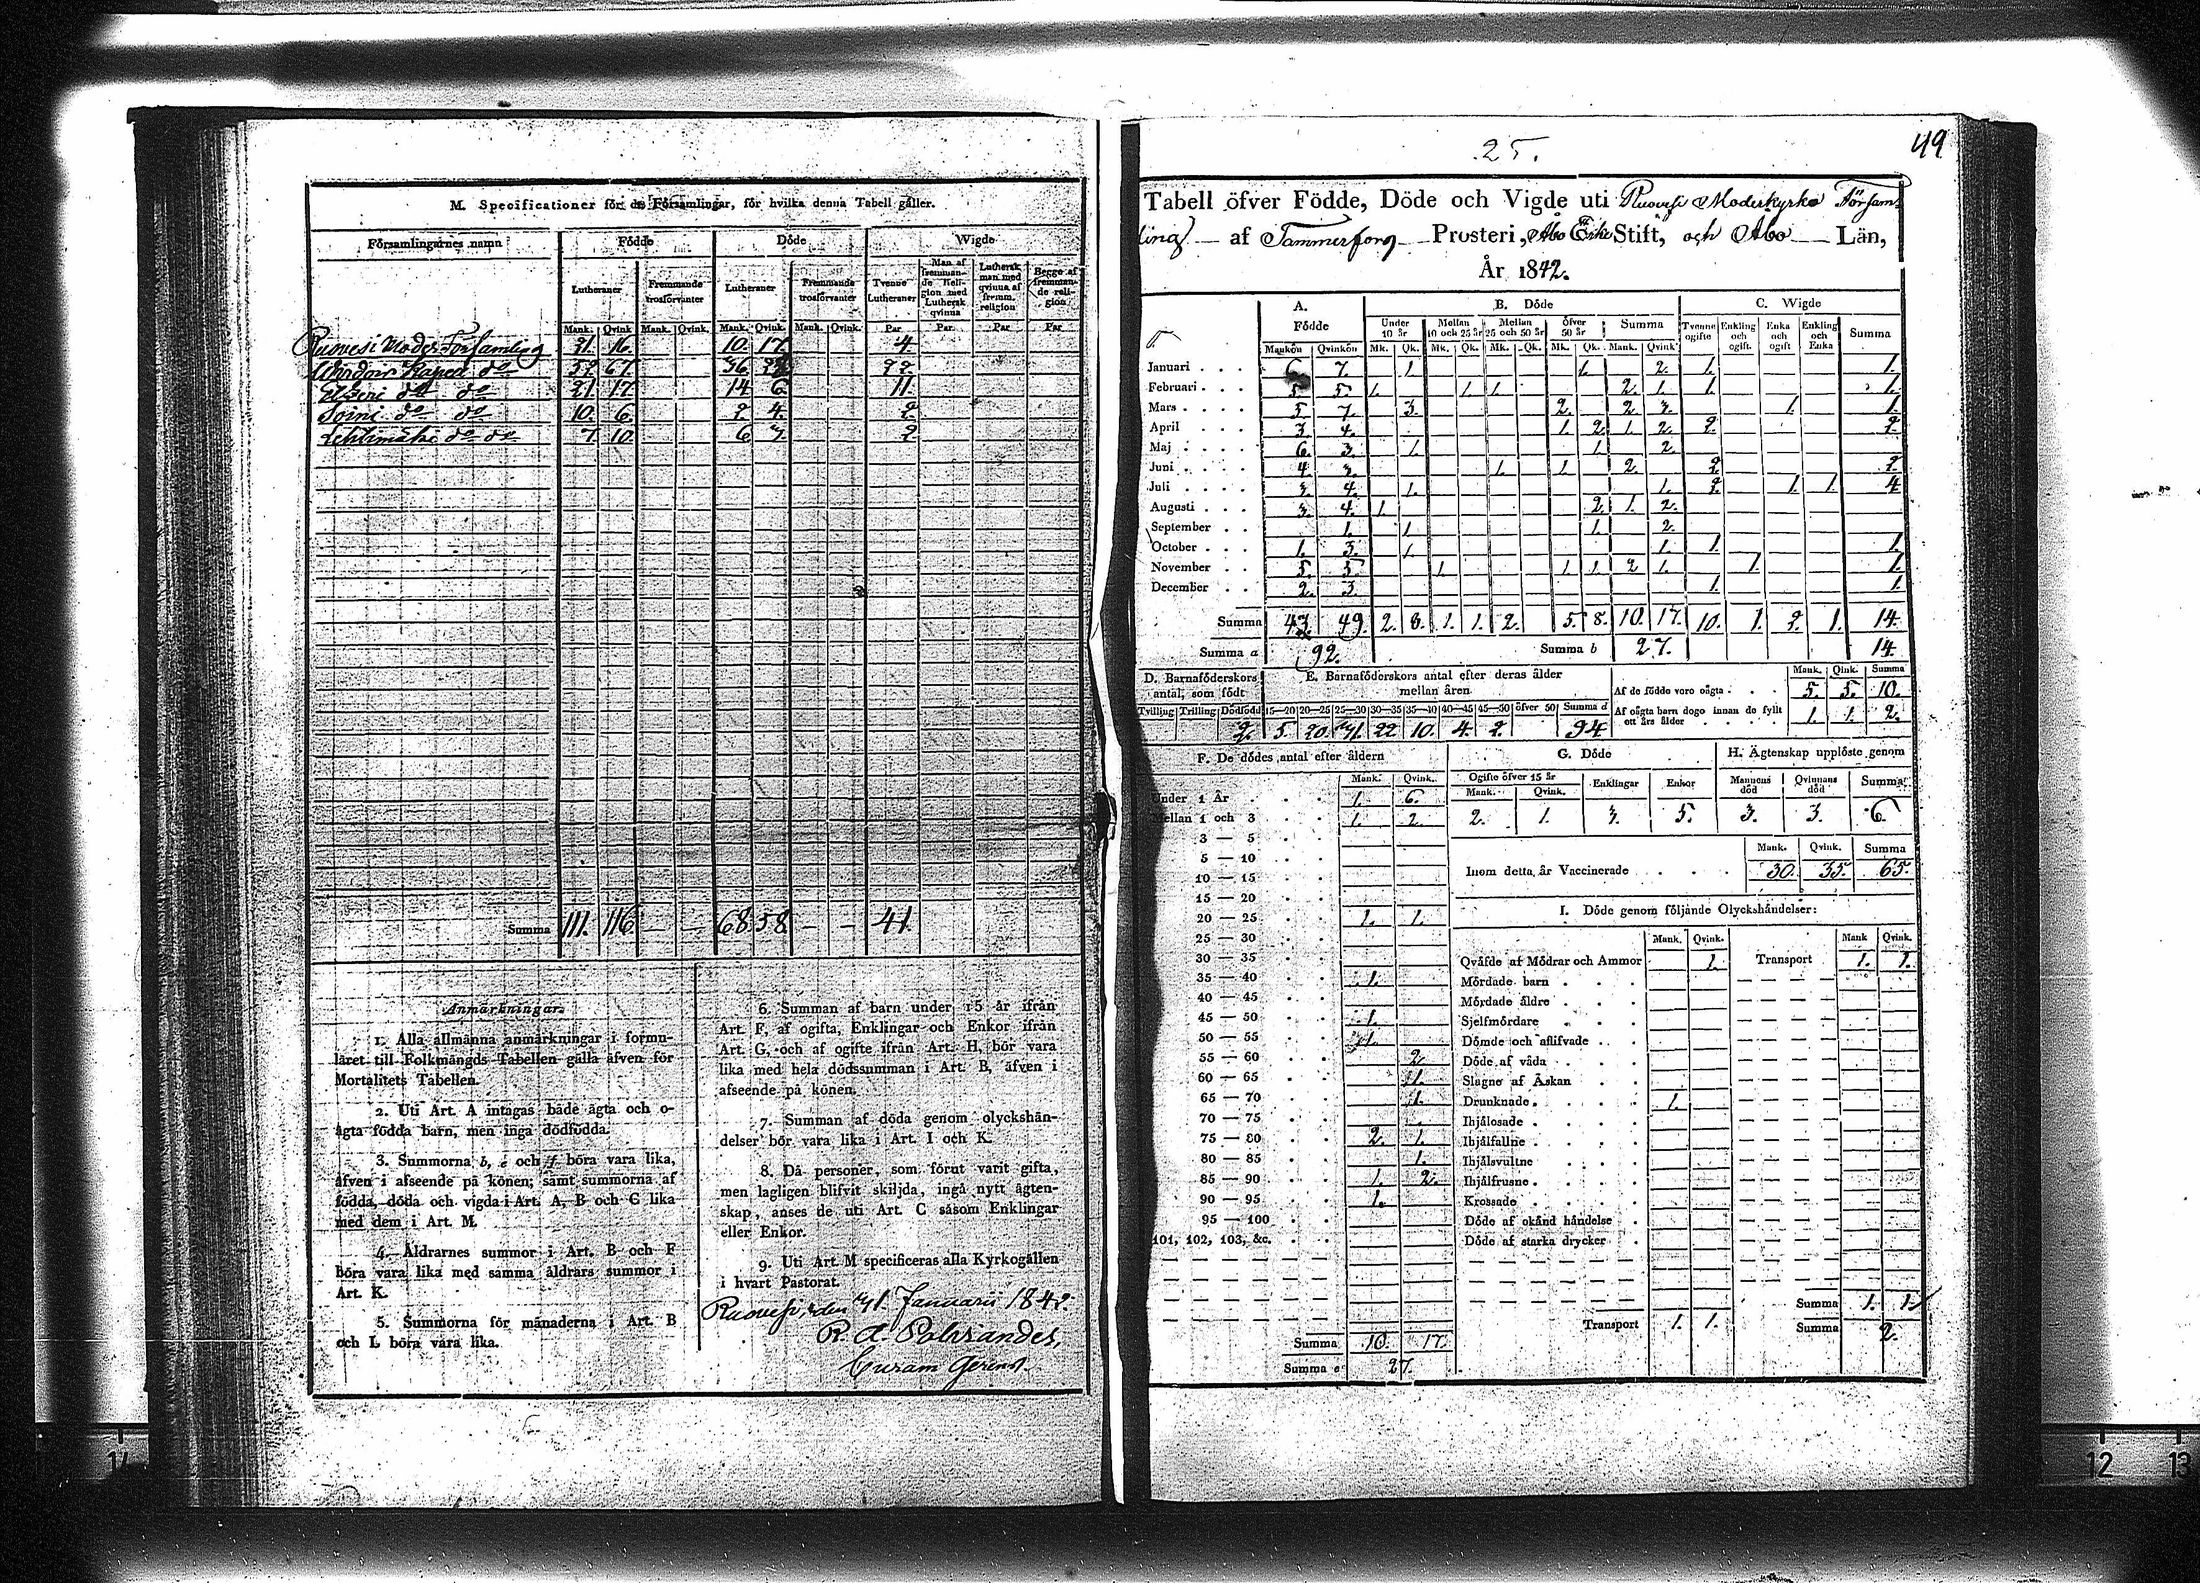 M. Specificationer för de Församlingar, för hvilka denna Tabell gäller.
Församlingarnes namn Födde Döde Wigde
Lutheraner Fremmande trosförvanter Lutheraner Fremmande trosförvanter Tvenne Lutheraner Man af fremmande Religion med Luthersk qvinna Luthersk man med qvinna af fremm. religion Begge af fremmande religion
Mank. Qvink. Mank. Qvink. Mank. Qvink. Mank. Qvink. Par Par Par Par
Ruovesi Moder Församling 21. 16. 10. 17. 4.
Kapell do 52. 67. 36. 22.
Etseri do do 21. 17. 14. 6. 11.
Soini do do 10. 6. 2. 4. 2.
Lehtimäki do do 7. 10. 6. 7. 2.
Summa 111. 116. — — 68. 58. — — 41.
Anmärkningar.
1. Alla allmänna anmärkningar i formu-
läret till Folkmängds Tabellen gälla äfven för
Mortalitets Tabellen.
2. Uti Art. A intagas både ägta och o-
ägta födda barn, men inga dödfödda.
3. Summorna b, e och f böra vara lika,
äfven i afseende på könen; samt summorna af
födda, döda och vigda i Art. A, B och C lika
med dem i Art. M.
4. Åldrarnes summor i Art. B och F
böra vara lika med samma åldrars summor i
Art. K.
5. Summorna för månaderna i Art. B
och L böra vara lika.
6. Summan af barn under 15 år ifrån
Art. F, af ogifta, Enklingar och Enkor ifrån
Art. G, och af ogifte ifrån Art. H, bör vara
lika med hela dödssumman i Art. B, äfven i
afseende på könen.
7. Summan af döda genom olyckshän-
delser bör vara lika i Art. I och K.
8. Då personer, som förut varit gifta,
men lagligen blifvit skiljda, ingå nytt ägten-
skap, anses de uti Art. C såsom Enklingar
eller Enkor.
9. Uti Art. M specificeras alla Kyrkogällen
i hvart Pastorat.
Ruovesi, den 31 Januarii 1842.
R. A.
Curam Gerens.
25.
49
Tabell öfver Födde, Döde och Vigde uti Ruovesi Moderkyrko Försam-
ling — af Tammerfors Prosteri, Åbo Erke Stift, och Åbo — Län,
År 1842.
A. Födde B. Döde C. Wigde
Under 10 år Mellan 10 och 25 år Mellan 25 och 50 år Öfver 50 år Summa Tvenne ogifte Enkling och ogift. Enka och ogift Enkling och Enka Summa
Mankön Qvinkön Mk. Qk. Mk. Qk. Mk. Qk. Mk. Qk. Mank. Qvink
Januari . . . 6 7. 1. 1. 2. 1. 1.
Februari . . . 5. 5. 1. 1. 1. 2. 1. 1. 1.
Mars . . . . 5 7. 3. 2. 2. 3. 1. 1.
April . . . 3. 4. 1. 2. 1. 2. 2. 2.
Maj . . . . 6. 3. 1. 1. 2.
Juni . . . . 4. 3. 1. 1. 2. 2. 2.
Juli . . . . 3. 4. 1. 1. 2. 1. 1. 4
Augusti . . . 3. 4. 1. 2. 1. 2.
September . . 1. 1. 1. 2.
October . . . 1. 3. 1. 1. 1. 1.
November . . 5. 5. 1. 1. 1. 2. 1. 1. 1.
December . . 2. 3. 1. 1.
Summa 43. 49. 2. 8. 1. 1. 2. 5. 8. 10. 17. 10. 1. 2. 1. 14.
Summa a 92. Summa b 27. 14.
D. Barnaföderskors antal, som födt
Tvilling Trilling Dödfödd
2.
E. Barnaföderskors antal efter deras ålder mellan åren
15—20 20—25 25—30 30—35 35—40 40—45 45—50 öfver 50 Summa d
5. 20. 31. 22. 10. 4. 2. 94.
Mank. Qink. Summa
Af de födde voro oägta . . . 5. 5. 10.
Af oägta barn dogo innan de fyllt ett års ålder . . . . 1. 1. 2.
F. De dödes antal efter åldern
Mank. Qvink.
Under 1 År . . . 1. 6.
Mellan 1 och 3 . . 1. 2.
3 — 5 . .
5 — 10 . .
10 — 15 . .
15 — 20 . .
20 — 25 . . 1. 1.
25 — 30 . .
30 — 35 . .
35 — 40 . . 1.
40 — 45 . .
45 — 50 . . 1.
50 — 55 . . 1.
55 — 60 . . 2.
60 — 65 . . 1.
65 — 70 . . 1.
70 — 75 . .
75 — 80 . . 2. 1.
80 — 85 . . 1.
85 — 90 . . 1. 2.
90 — 95 . . 1.
95 — 100 . .
101, 102, 103, &c. . .
Summa 10. 17.
Summa e 27.
G. Döde
Ogifte öfver 15 år Enklingar Enkor
Mank. Qvink.
2. 1. 3. 5.
H. Ägtenskap upplöste genom
Mannens död Qvinnans död Summa
3. 3. 6.
Mank. Qvink. Summa
Inom detta år Vaccinerade . . . . 30. 35. 65.
I. Döde genom följande Olyckshändelser:
Mank. Qvink. Mank Qvink.
Qväfde af Mödrar och Ammor 1. Transport 1. 1.
Mördade barn . . .
Mördade äldre . . .
Sjelfmördare . .
Dömde och aflifvade . .
Döde af våda . . .
Slagne af Åskan . .
Drunknade . . . . 1.
Ihjälosade . . . .
Ihjälfallne . . . .
Ihjälsvultne . . . .
Ihjälfrusne . . . .
Krossade . . . .
Döde af okänd händelse .
Döde af starka drycker .
Summa 1. 1.
Transport 1. 1. Summa 2.
12 13